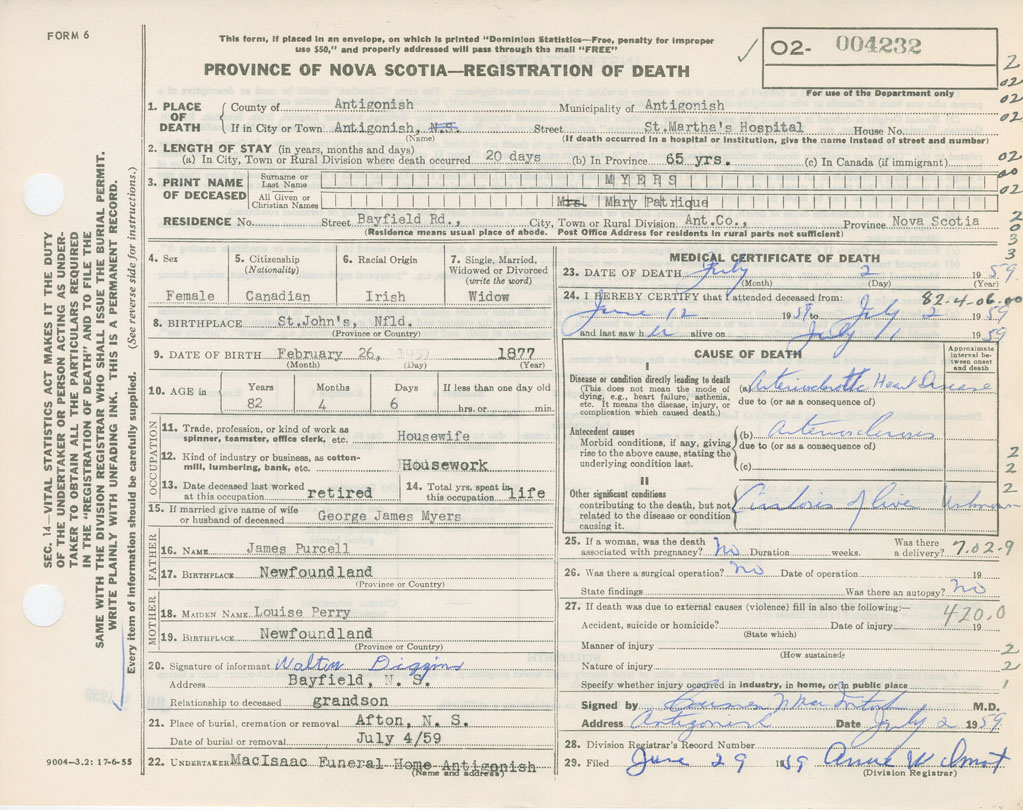 FORM 6
This form, if placed in an envelope, on which is printed "Dominion Statistics—Free, penalty for improper
use $50," and properly addressed will pass through the mail "FREE"
02- 004232
For use of the Department only
PROVINCE OF NOVA SCOTIA—REGISTRATION OF DEATH
1. PLACE OF DEATH County of Antigonish Municipality of Antigonish
If in City or Town Antigonish, N.S. Street St.Martha's Hospital House No.
(Name) (If death occurred in a hospital or institution, give the name instead of street and number)
2. LENGTH OF STAY (in years, months and days)
(a) In City, Town or Rural Division where death occurred 20 days (b) In Province 65 yrs. (c) In Canada (if immigrant)
3. PRINT NAME OF DECEASED Surname or Last Name MYERS
All Given or Christian Names Mrs. Mary Patrique
RESIDENCE No. Street Bayfield Rd., City, Town or Rural Division Ant.Co., Province Nova Scotia
(Residence means usual place of abode. Post Office Address for residents in rural parts not sufficient)
4. Sex Female
5. Citizenship (Nationality) Canadian
6. Racial Origin Irish
7. Single, Married, Widowed or Divorced (write the word) Widow
8. BIRTHPLACE St.John's, Nfld.
(Province or Country)
9. DATE OF BIRTH February 26, 1877
(Month) (Day) (Year)
10. AGE in Years Months Days If less than one day old
82 4 6 hrs. or min.
OCCUPATION
11. Trade, profession, or kind of work as spinner, teamster, office clerk, etc. Housewife
12. Kind of industry or business, as cotton-mill, lumbering, bank, etc. Housework
13. Date deceased last worked at this occupation retired
14. Total yrs. spent in this occupation life
15. If married give name of wife or husband of deceased George James Myers
FATHER
16. NAME James Purcell
17. BIRTHPLACE Newfoundland
(Province or Country)
MOTHER
18. MAIDEN NAME Louise Perry
19. BIRTHPLACE Newfoundland
(Province or Country)
20. Signature of informant Walter Diggins
Address Bayfield, N. S.
Relationship to deceased grandson
21. Place of burial, cremation or removal Afton, N. S.
Date of burial or removal July 4/59
22. UNDERTAKER MacIsaac Funeral Home Antigonish
(Name and address)
MEDICAL CERTIFICATE OF DEATH
23. DATE OF DEATH July 2 1959
(Month) (Day) (Year)
24. I HEREBY CERTIFY that I attended deceased from: 82-4-06.00
June 12 1959 to July 2 1959
and last saw her alive on July 11 1959
CAUSE OF DEATH
Approximate interval between onset and death
I
Disease or condition directly leading to death
(This does not mean the mode of dying, e.g., heart failure, asthenia, etc. It means the disease, injury, or complication which caused death.)
(a) Arteriosclerotic Heart Disease
due to (or as a consequence of)
Antecedent causes
Morbid conditions, if any, giving rise to the above cause, stating the underlying condition last.
(b) Arteriosclerosis
due to (or as a consequence of)
(c)
II
Other significant conditions contributing to the death, but not related to the disease or condition causing it.
Cirrhosis of liver Unknown
25. If a woman, was the death associated with pregnancy? No Duration weeks. Was there a delivery? 7.02-9
26. Was there a surgical operation? No Date of operation 19
State findings Was there an autopsy? No
27. If death was due to external causes (violence) fill in also the following:—
420.0
Accident, suicide or homicide? Date of injury 19
(State which)
Manner of injury
(How sustained)
Nature of injury
Specify whether injury occurred in industry, in home, or in public place
Signed by M.D.
Address Antigonish Date July 2 1959
28. Division Registrar's Record Number
29. Filed June 29 1959
(Division Registrar)
SEC. 14—VITAL STATISTICS ACT MAKES IT THE DUTY
OF THE UNDERTAKER OR PERSON ACTING AS UNDER-
TAKER TO OBTAIN ALL THE PARTICULARS REQUIRED
IN THE "REGISTRATION OF DEATH" AND TO FILE THE
SAME WITH THE DIVISION REGISTRAR WHO SHALL ISSUE THE BURIAL PERMIT.
WRITE PLAINLY WITH UNFADING INK. THIS IS A PERMANENT RECORD.
Every item of information should be carefully supplied. (See reverse side for instructions.)
9004—3,2: 17-6-55
2
02
02
02
02
00
02
2
0
3
3
2
2
2
2
2
1